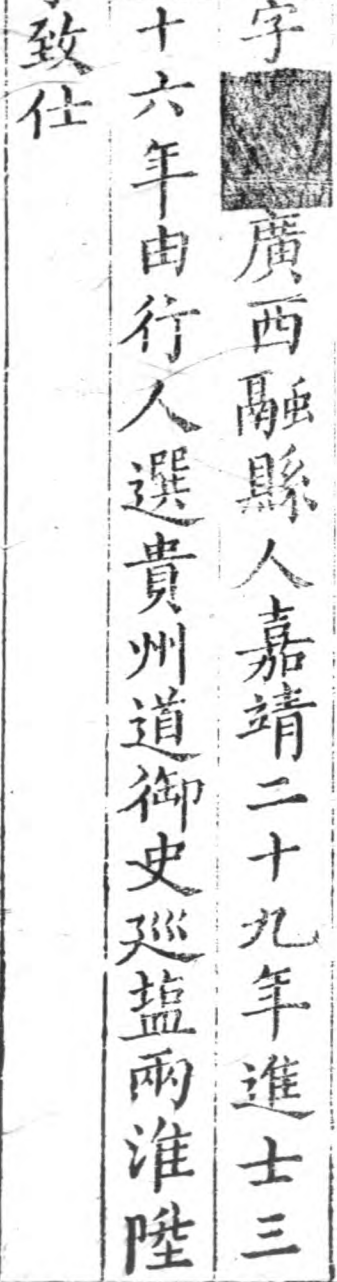 字 廣西融縣人嘉靖二十九年進士三
十六年由行人選貴州道御史廵塩兩淮陞
致仕